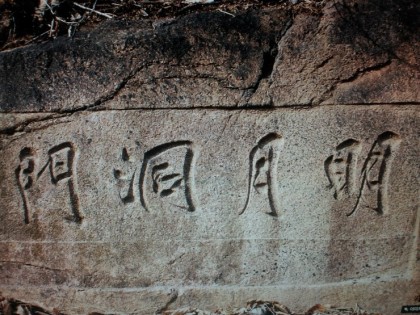 明月洞門